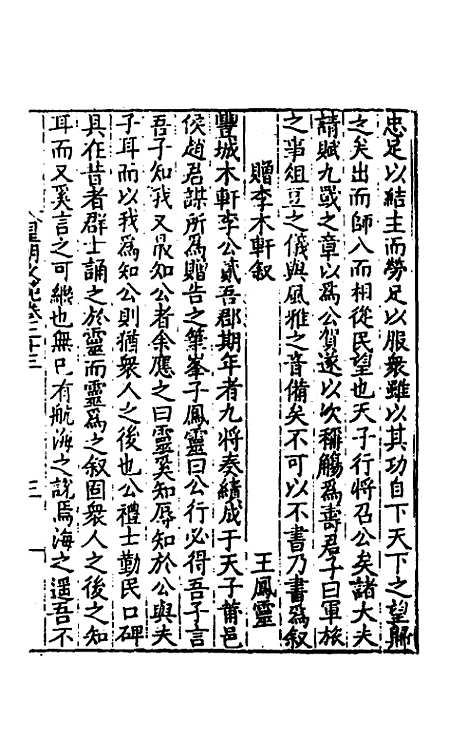 忠足以結主而勞足以服衆雖以其功自下天下之望歸
之矣出而師入而相從民望也天子行將召公矣諸大夫
請賦九罭之章以爲公賀遂以次稱觴爲壽君子曰軍旅
之事俎豆之儀與風雅之音備矣不可以不書乃書爲叙
贈李木軒叙　王鳳靈
豐城木軒李公貳吾郡期年者九將奏績成于天子莆邑
侯趙君謀所爲贈告之筆峯子鳳靈曰公行必得吾子言
吾子知我又最知公者余應之曰靈奚知辱知於公與夫
子耳而以我爲知公則猶衆人之後也公禮士勤民口碑
具在昔者群士誦之於靈而靈爲之叙固衆人之後之知
耳而又奚言之可綴也無已有航海之說焉海之遥吾不
皇明文範卷二十三　三